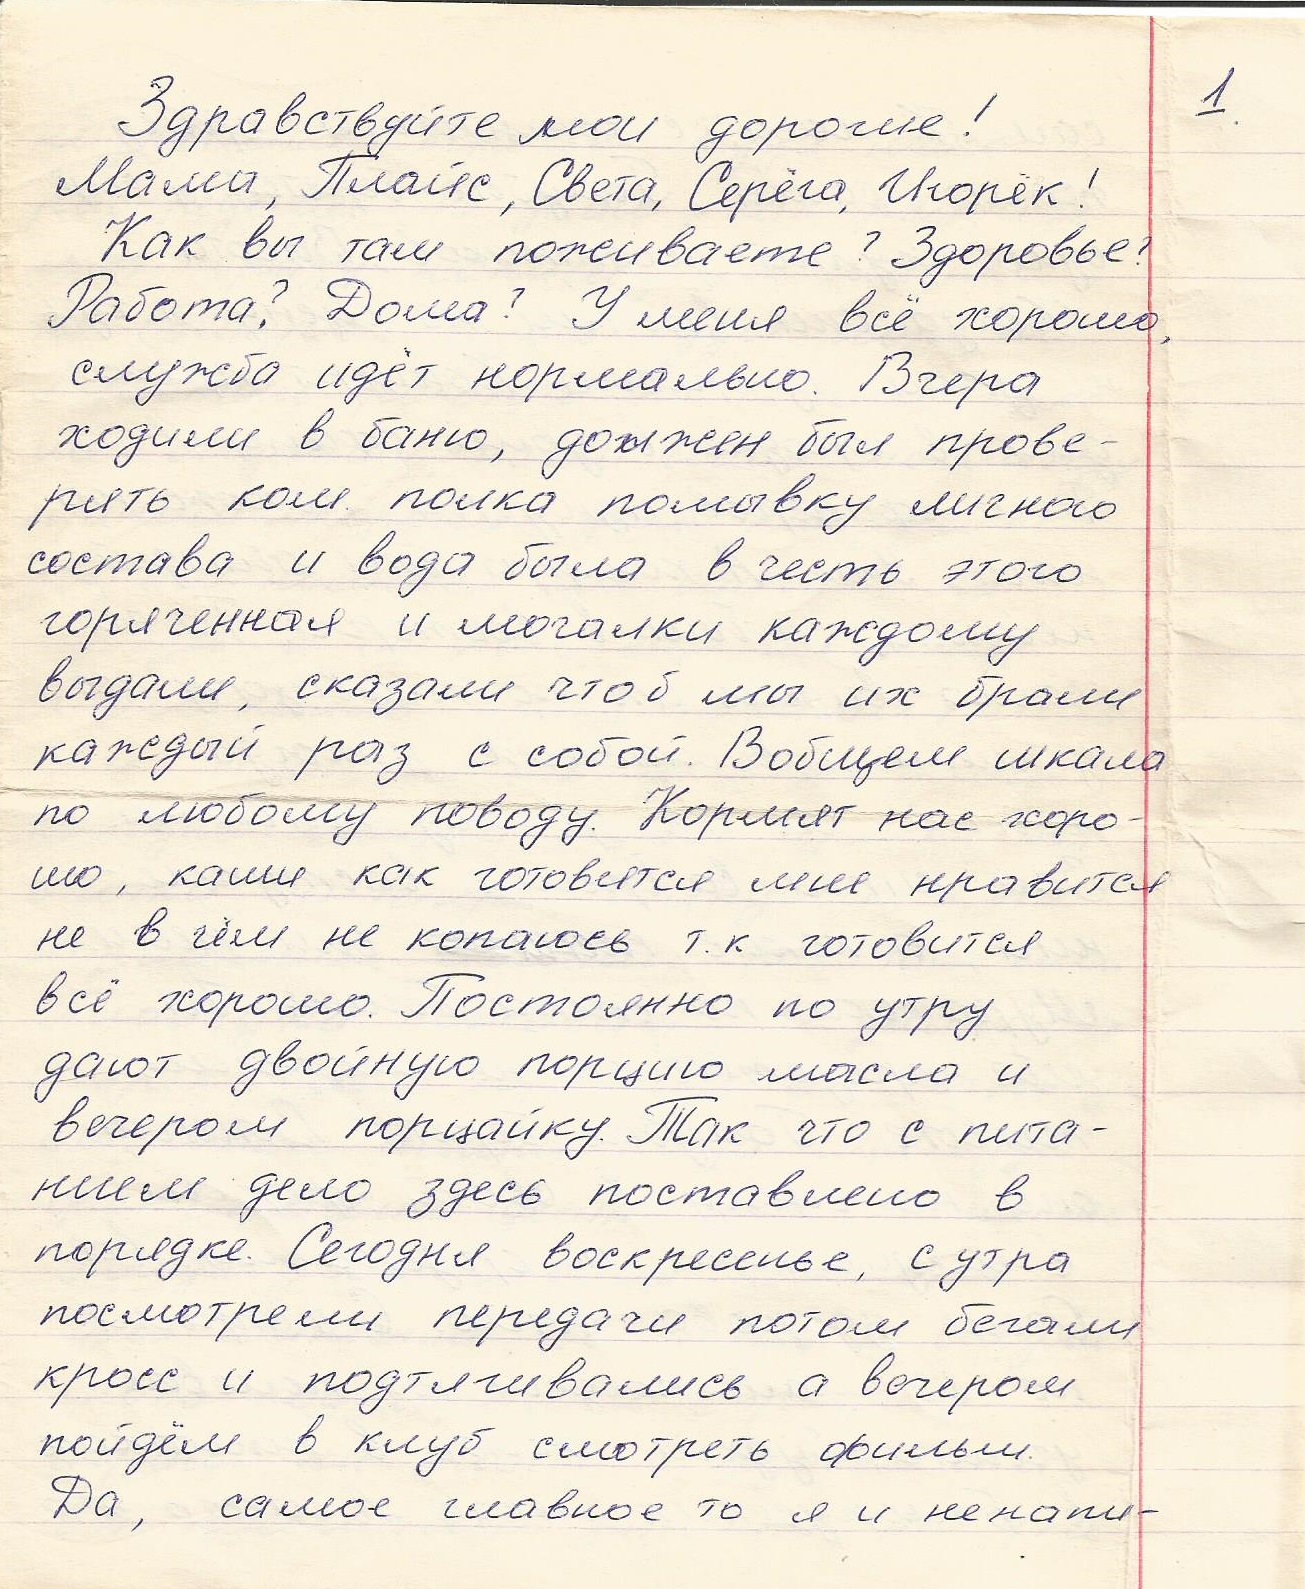 1.
Здравствуйте мои дорогие!
Мама, Плайс, Света, Серёга, Игорёк!
Как вы там поживаете? Здоровье?
Работа? Дома? У меня всё хорошо,
служба идёт нормально. Вчера
ходили в баню, должен был прове-
рять ком. полка помывку личного
состава и вода была в честь этого
горяченная и мочалки каждому
выдали, сказали чтоб мы их брали
каждый раз с собой. Вобщем шкала
по любому поводу. Кормят нас хоро-
шо, каши как готовятся мне нравится
не в чём не копаюсь т.к готовится
всё хорошо. Постоянно по утру
дают двойную порцию масла и
вечером порцайку. Так что с пита-
нием дело здесь поставлено в
порядке. Сегодня воскресенье, с утра
посмотрели передачи потом бегали
кросс и подтягивались а вечером
пойдём в клуб смотреть фильм.
Да, самое главное то я и ненапи-